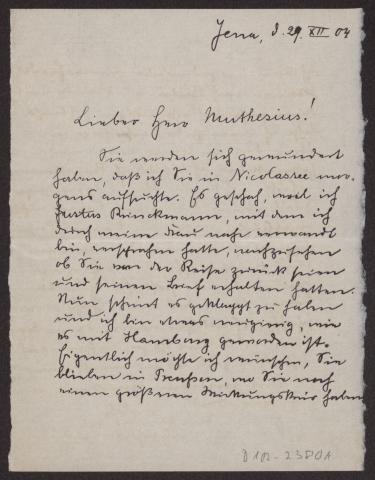 Jena, d. 29. XII 04
Lieber Herr Muthesius!
Sie werden sich gewundert
haben, daß ich Sie in Nicolassee mor-
gens aufsuchte. Es geschah, weil ich
Justus Brinckmann, mit dem ich
durch meine Frau nahe verwandt
bin, versprochen hatte, nachzusehen
ob Sie von der Reise zurück seien
und seinen Brief erhalten hätten.
Nun scheint es geklappt zu haben
und ich bin etwas neugierig, wie
es mit Hamburg geworden ist.
Eigentlich möchte ich wünschen, Sie
blieben in Preußen, wo Sie noch
einen größeren Wirkungskreis haben
D 102-2380A